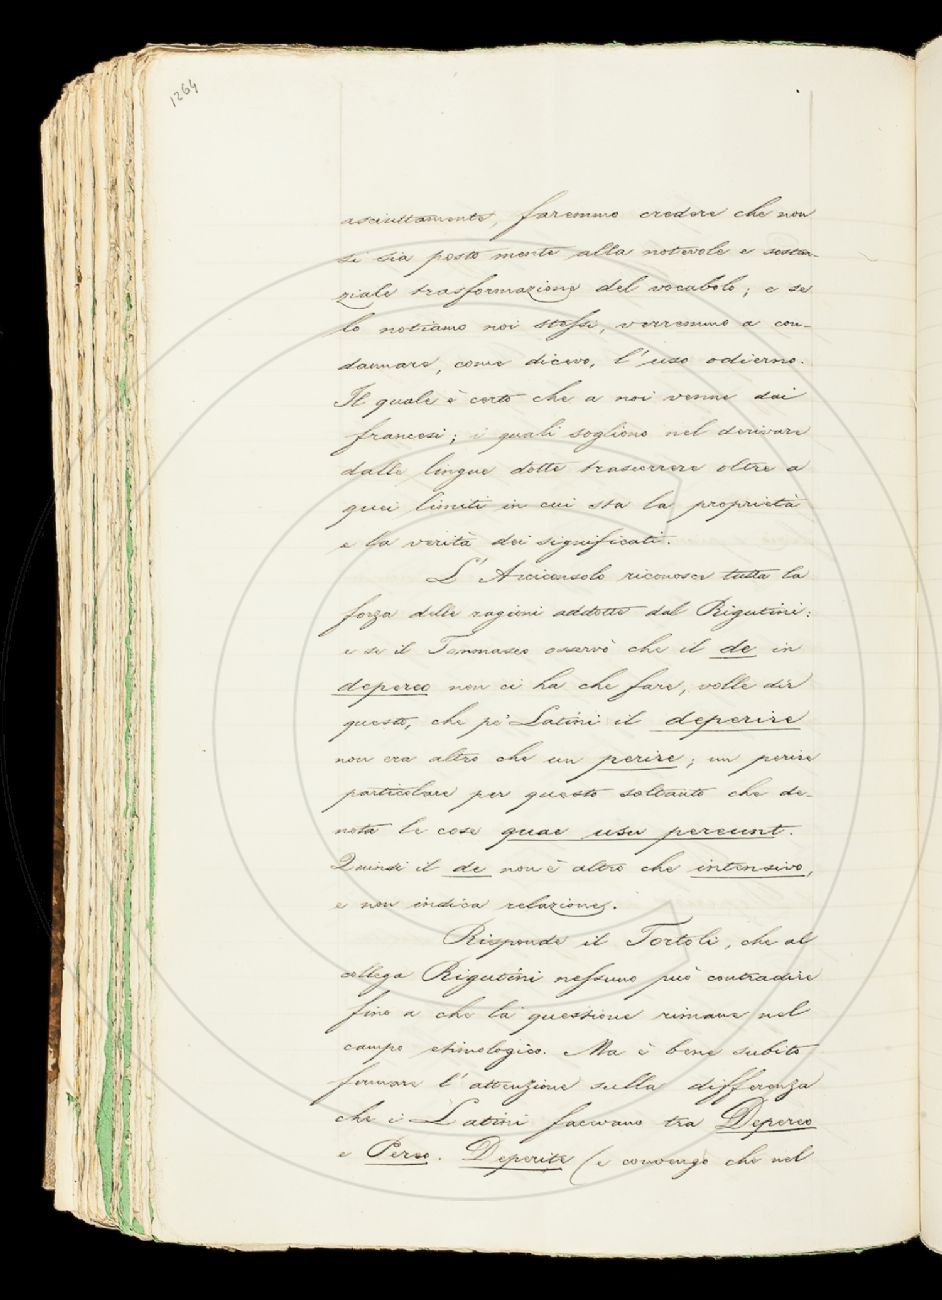 1264
asciuttamente, faremmo credere che non
si sia posto mente alla notevole e sostan-
ziale trasformazione del vocabolo; e se
lo notiamo noi stessi, verremmo a con-
dannare, come dicevo, l'uso odierno.
Il quale è certo che a noi venne dai
francesi; i quali sogliono nel derivare
dalle lingue dotte trascorrere oltre a
quei limiti in cui sta la proprietà
e la verità dei significati.
L'Arciconsolo riconosce tutta la
forza delle ragioni addotte dal Rigutini:
e se il Tommaseo osservò che il de in
depereo non ci ha che fare, volle dir
questo, che pe' Latini il deperire
non era altro che un perire; un perire
particolare per questo soltanto che de-
nota le cose quae usu pereunt.
Quindi il de non è altro che intensivo,
e non indica relazione.
Risponde il Tortoli, che al
collega Rigutini nessuno può contradire
fino a che la questione rimane nel
campo etimologico. Ma è bene subito
fermare l'attenzione sulla differenza
che i Latini facevano tra Depereo
e Pereo. Deperite (e convengo che nel